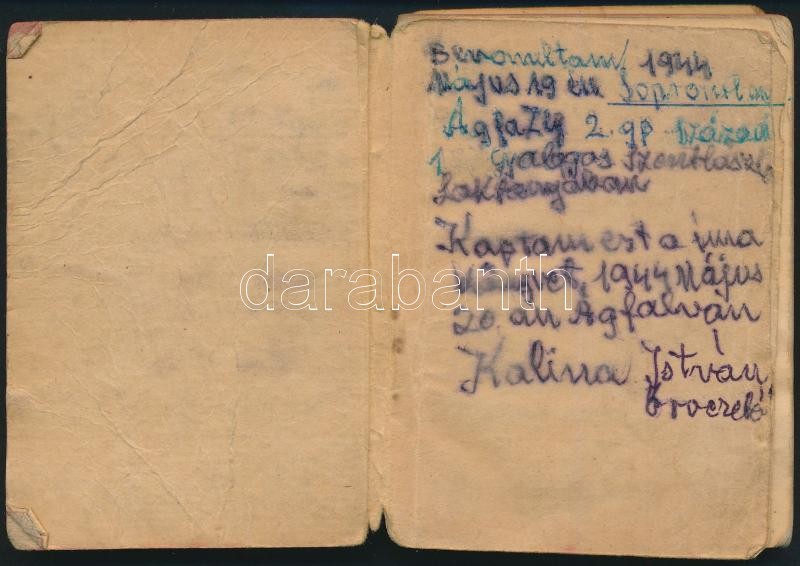 Bevonultam 1944
Május 19 én Sopronban
Ágfalv 2. gp század
1 Gyalogos Szentlászl
Laktanyában
Kaptam ezt a ima
könyvet, 1944 Május
20. án Ágfalván
Kalina István
darabanth